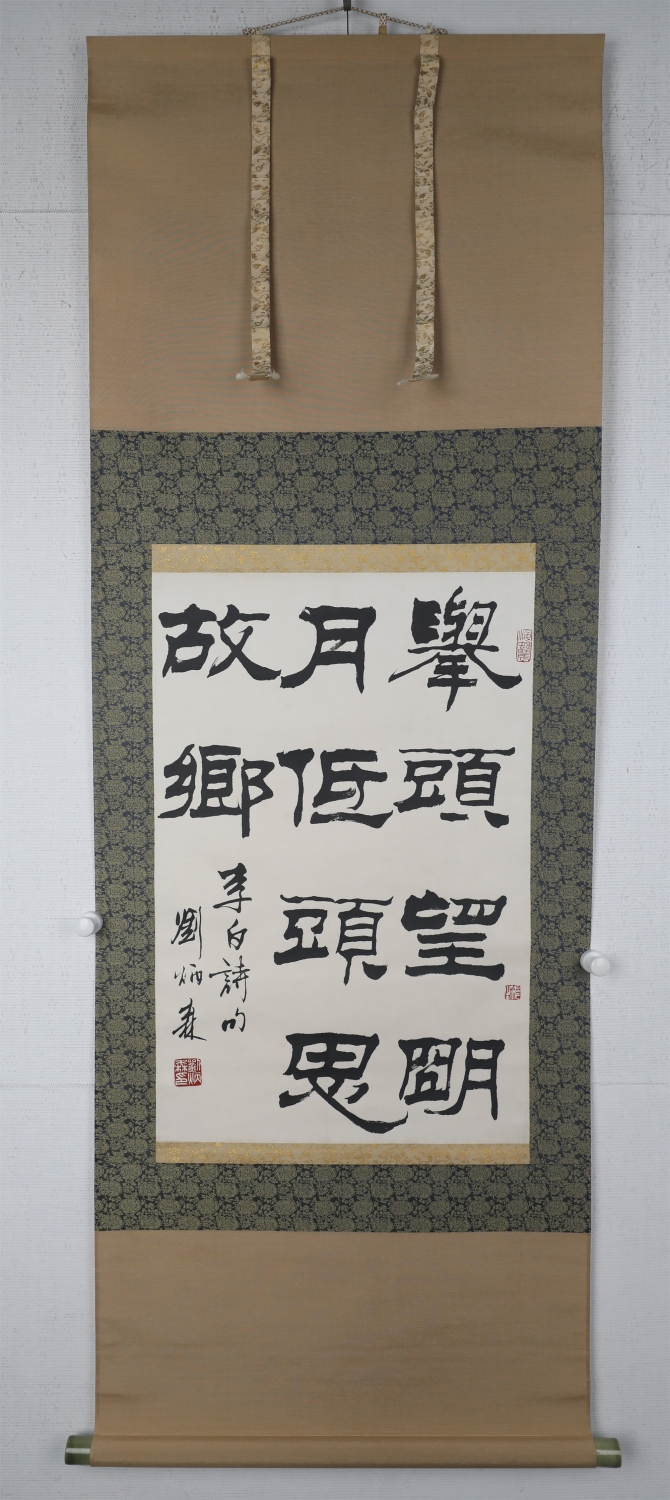 舉頭望朙
月低頭思
故鄉
李白詩句
劉炳森